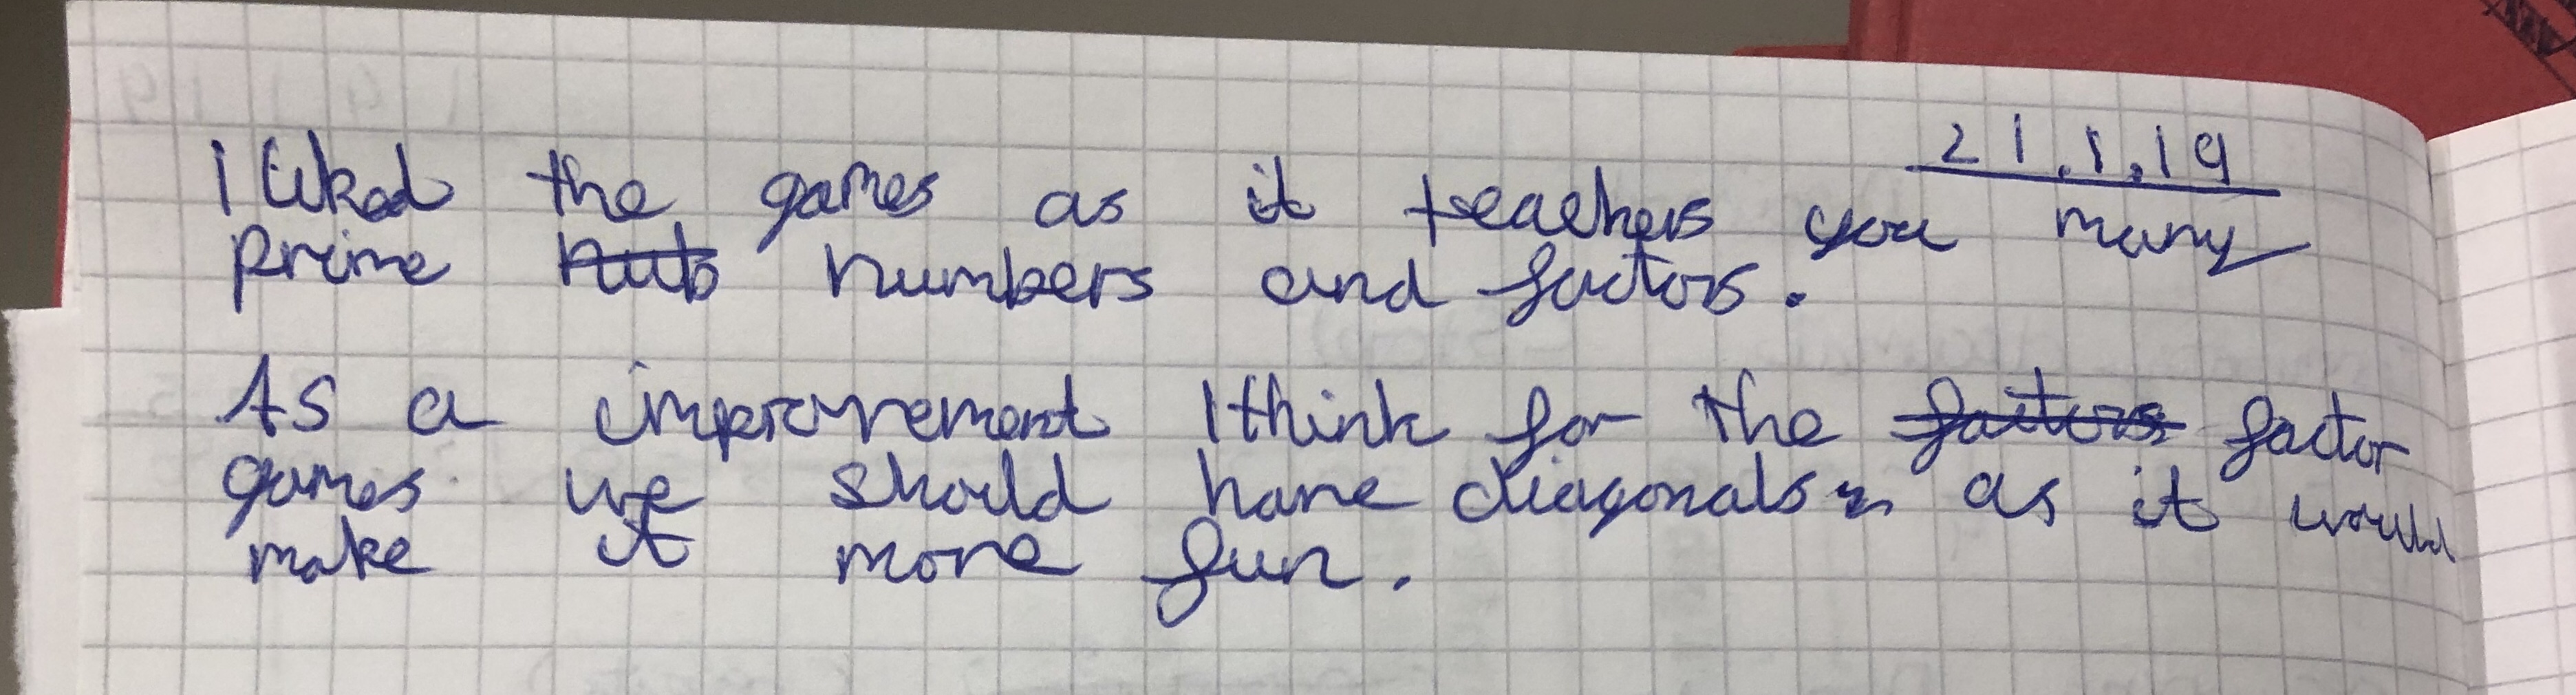 21.1.19
I liked the games as it teaches you many
prime numbers and factors.
As a improvement I think for the factors factor
games we should have diagonals as it would
make it more fun.